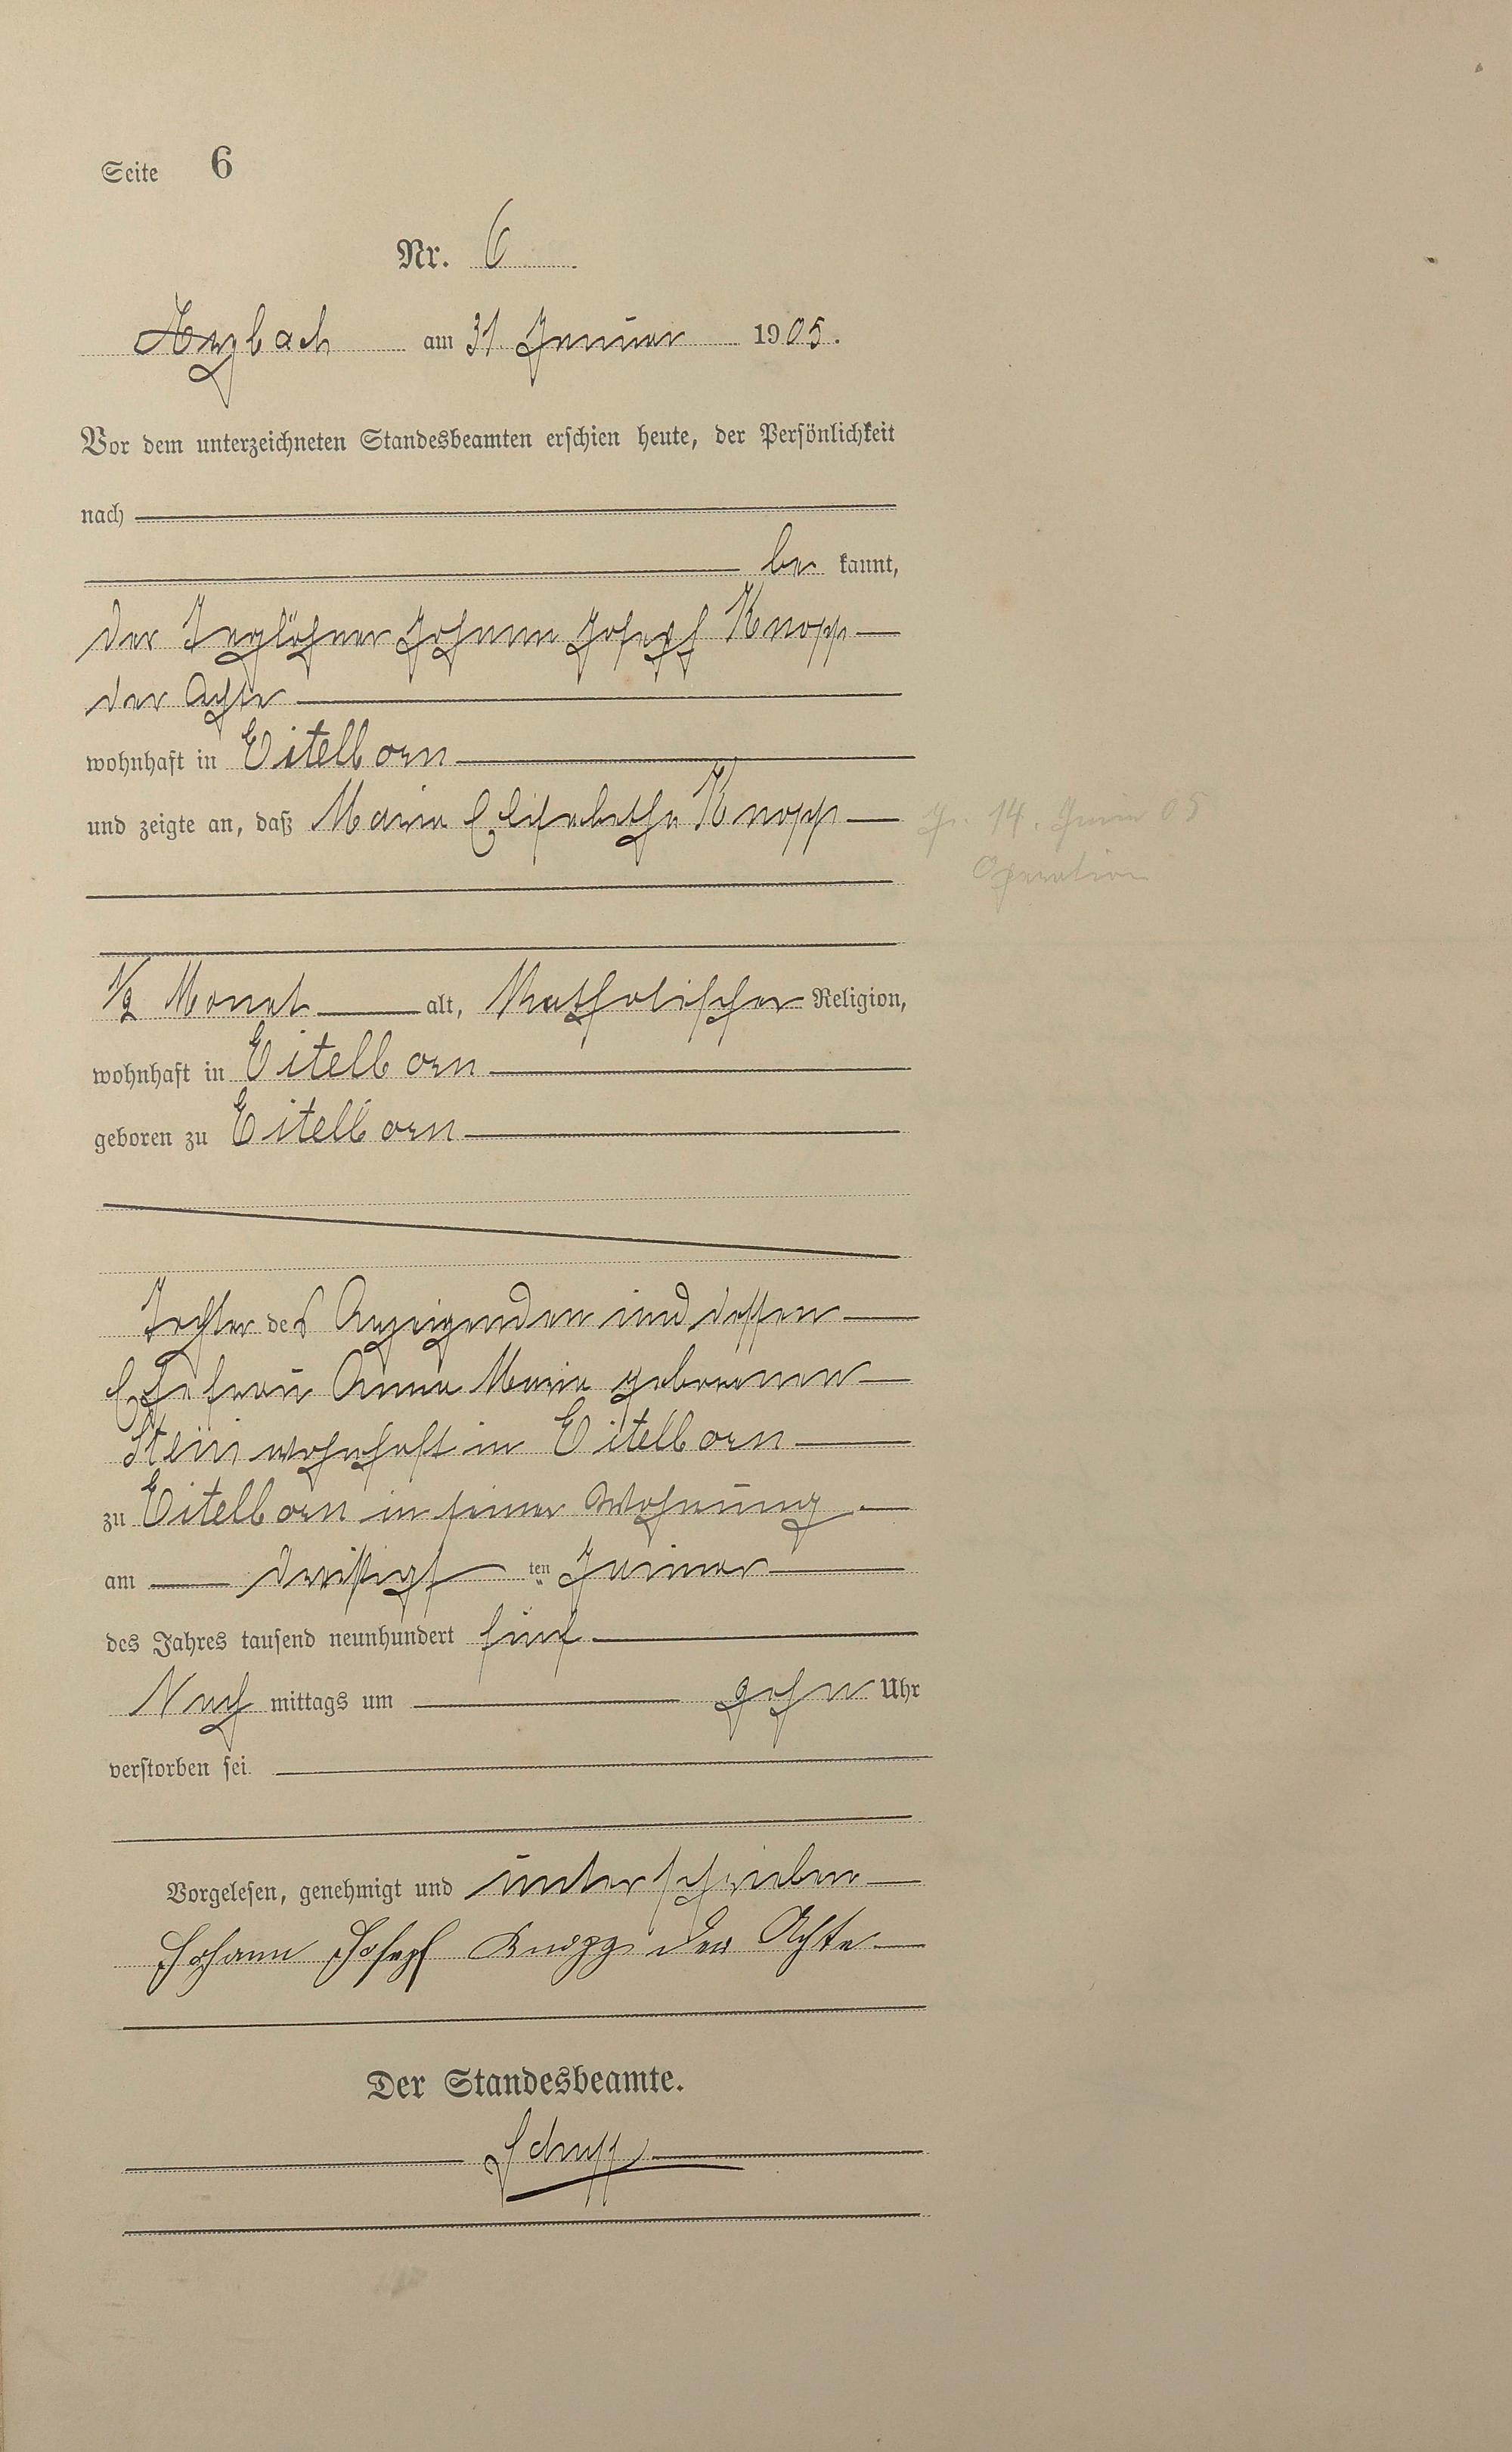 Seite 6
Nr. 6
Arzbach am 31 Januar 1905.
Vor dem unterzeichneten Standesbeamten erschien heute, der Persönlichkeit
nach
be kannt,
der Taglöhner Johann Joseph Knopp
der Achte
wohnhaft in Eitelborn
und zeigte an, daß Maria Elisabetha Knopp
14. 05
Operation
1/2 Monat alt, Katholischer Religion,
wohnhaft in Eitelborn
geboren zu Eitelborn
Tochter des Anzeigenden und dessen
Ehefrau Anna Maria geborenen
Stein wohnhaft in Eitelborn
zu Eitelborn in seiner Wohnung
am dreißigs ten Januar
des Jahres tausend neunhundert fünf
Nach mittags um zehn Uhr
verstorben sei.
Vorgelesen, genehmigt und unterschrieben
Johann Joseph Knopp der Achte
Der Standesbeamte.
Schupp